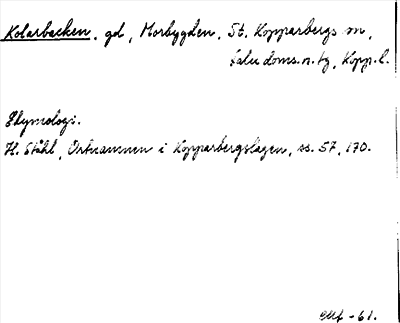 Kolarbacken, gd, Morbygden, St. Kopparbergs sn,
Falu doms. n. tg, Kopp. l.
Etymologi.
H. Ståhl, Ortnamnen i Kopparbergslagen, ss. 57, 170.
-61.